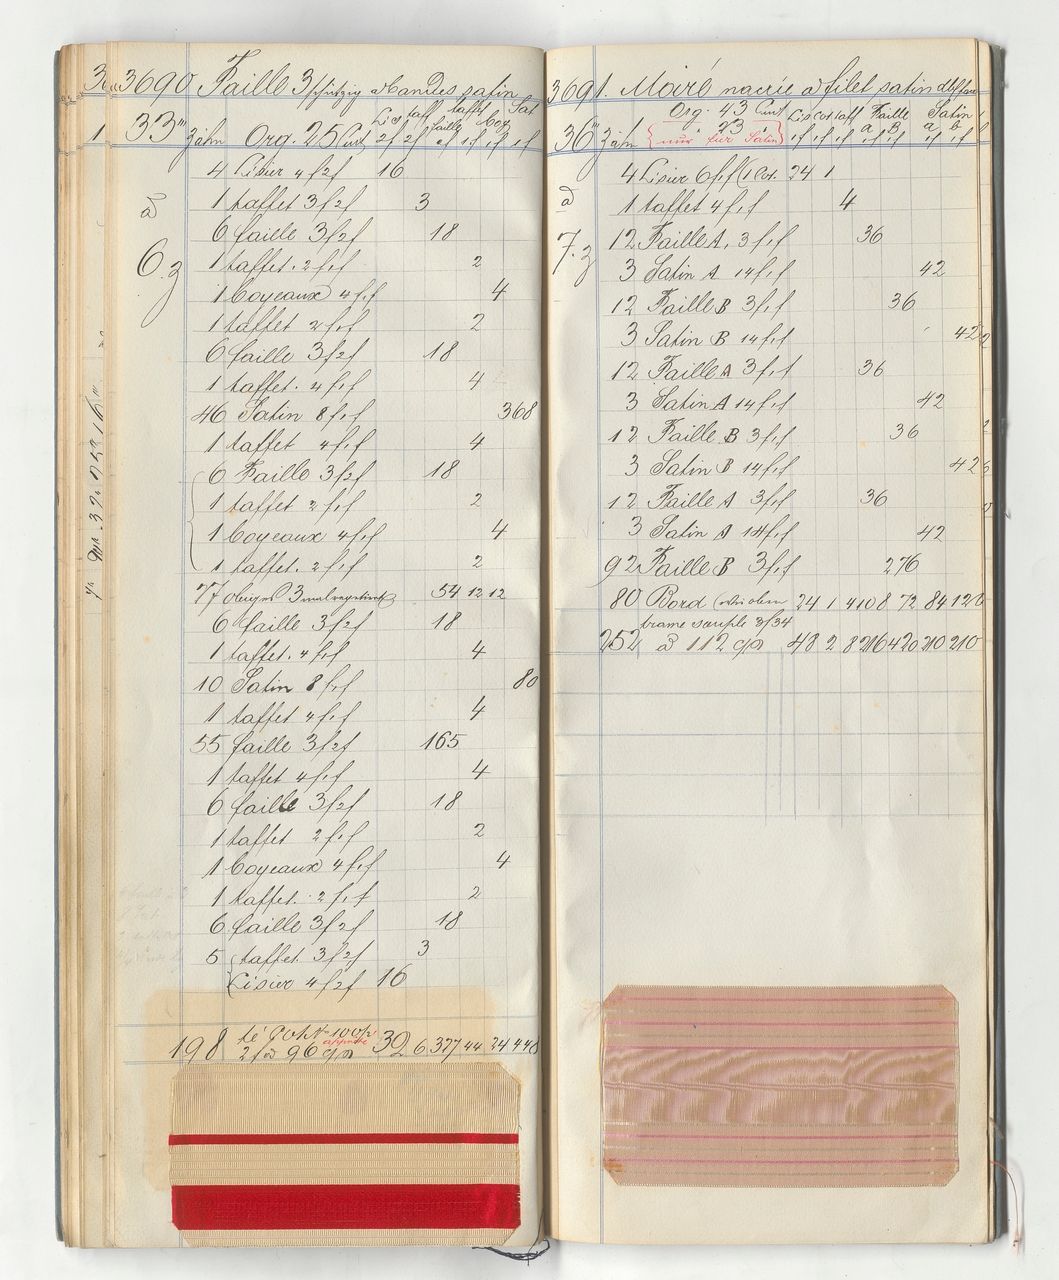 3690 Faille 3 schützig à Bandes satin
33''' zähn Org. 25 Cuit Lis taff faille taffet Boy Sat
2f 2f 2f 1f 1f 1f
à 6.z
4 Lisier 4f2f 16
1 taffet 3f2f 3
6 faille 3f2f 18
1 taffet. 2f1f 2
1 boyeaux 4f1f 4
1 taffet 2f1f 2
6 faille 3f2f 18
1 taffet. 4f1f 4
46 Satin 8f1f 368
1 taffet 4f1f 4
6 Faille 3f2f 18
1 taffet 2f1f 2
1 boyeaux 4f1f 4
1 taffet. 2f1f 2
77 3mal 54 12 12
6 faille 3f2f 18
1 taffet. 4f1f 4
10 Satin 8f1f 80
1 taffet 4f1f 4
55 faille 3f2f 165
1 taffet 4f1f 4
6 faille 3f2f 18
1 taffet 2f1f 2
1 boyeaux 4f1f 4
1 taffet. 2f1f 2
6 faille 3f2f 18
5 taffet 3f2f 3
Lisier 4f2f 16
100
198 2f à 96 32 6 327 44 24 448
3691. Moiré nacrée à filet satin
36''' zähn Org. 43 Cuit Lis Cot taff Faille Satin
23
nur für Satin
1f 1f 1f a B a b
1f 1f 1f 1f
à 7.z
4 Lisier 6f1f (1 Cot. 24 1
1 taffet 4f1f 4
12 Faille A, 3f1f 36
3 Satin A 14f1f 42
12 Faille B 3f1f 36
3 Satin B 14f1f 42
12 Faille A 3f1f 36
3 Satin A 14f1f 42
12 Faille B 3f1f 36
3 Satin B 14f1f 42
12 Faille A 3f1f 36
3 Satin A 14f1f 42
92 Faille B 3f1f 276
80 Bord (wie oben 24 1 4 108 72 84 126
trame souple 3f34
252 à 112 48 2 8 216 420 210 210